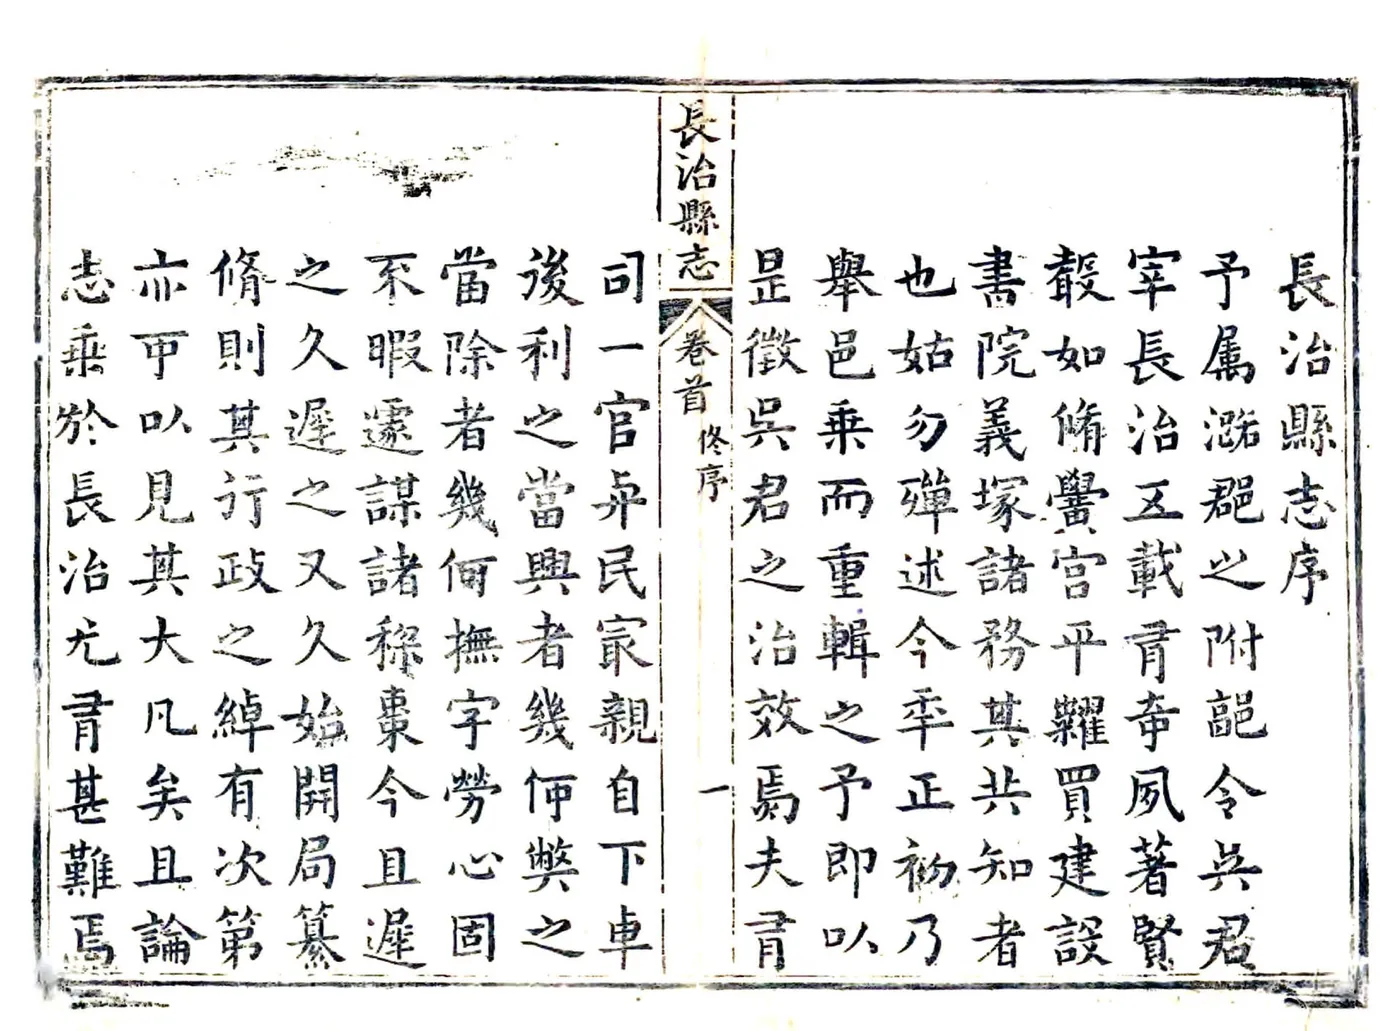 長治縣志序
予属潞郡之附郭令吳君
宰長治五載有竒夙著賢
聲如脩黌宫平糶買建設
書院義塚諸務其共知者
也姑勿殫述今年正初乃
舉邑乗而重輯之予即以
是徵吳君之治效焉夫有
長治縣志
卷首
修序
一
司一官典民冣親自下車
後利之當興者幾何弊之
當除者幾何撫字勞心固
不暇遽謀諸梓棗今且遲
之久遲之又久始開局纂
脩則其行政之綽有次第
亦可以見其大凡矣且論
志乗於長治尤有甚難焉